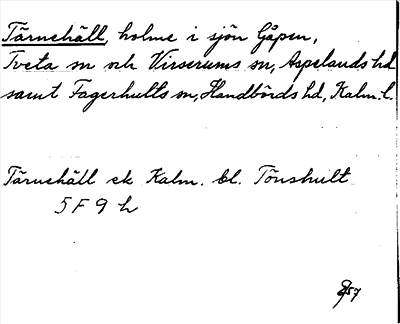 Tärnehäll, holme i sjön Gåpen,
Tveta sn och Virserums sn, Aspelands hd
samt Fagerhults sn, Handbörds hd, Kalm. l.
Tärnehäll ek Kalm. bl. Tönshult
5 F 9 h
57